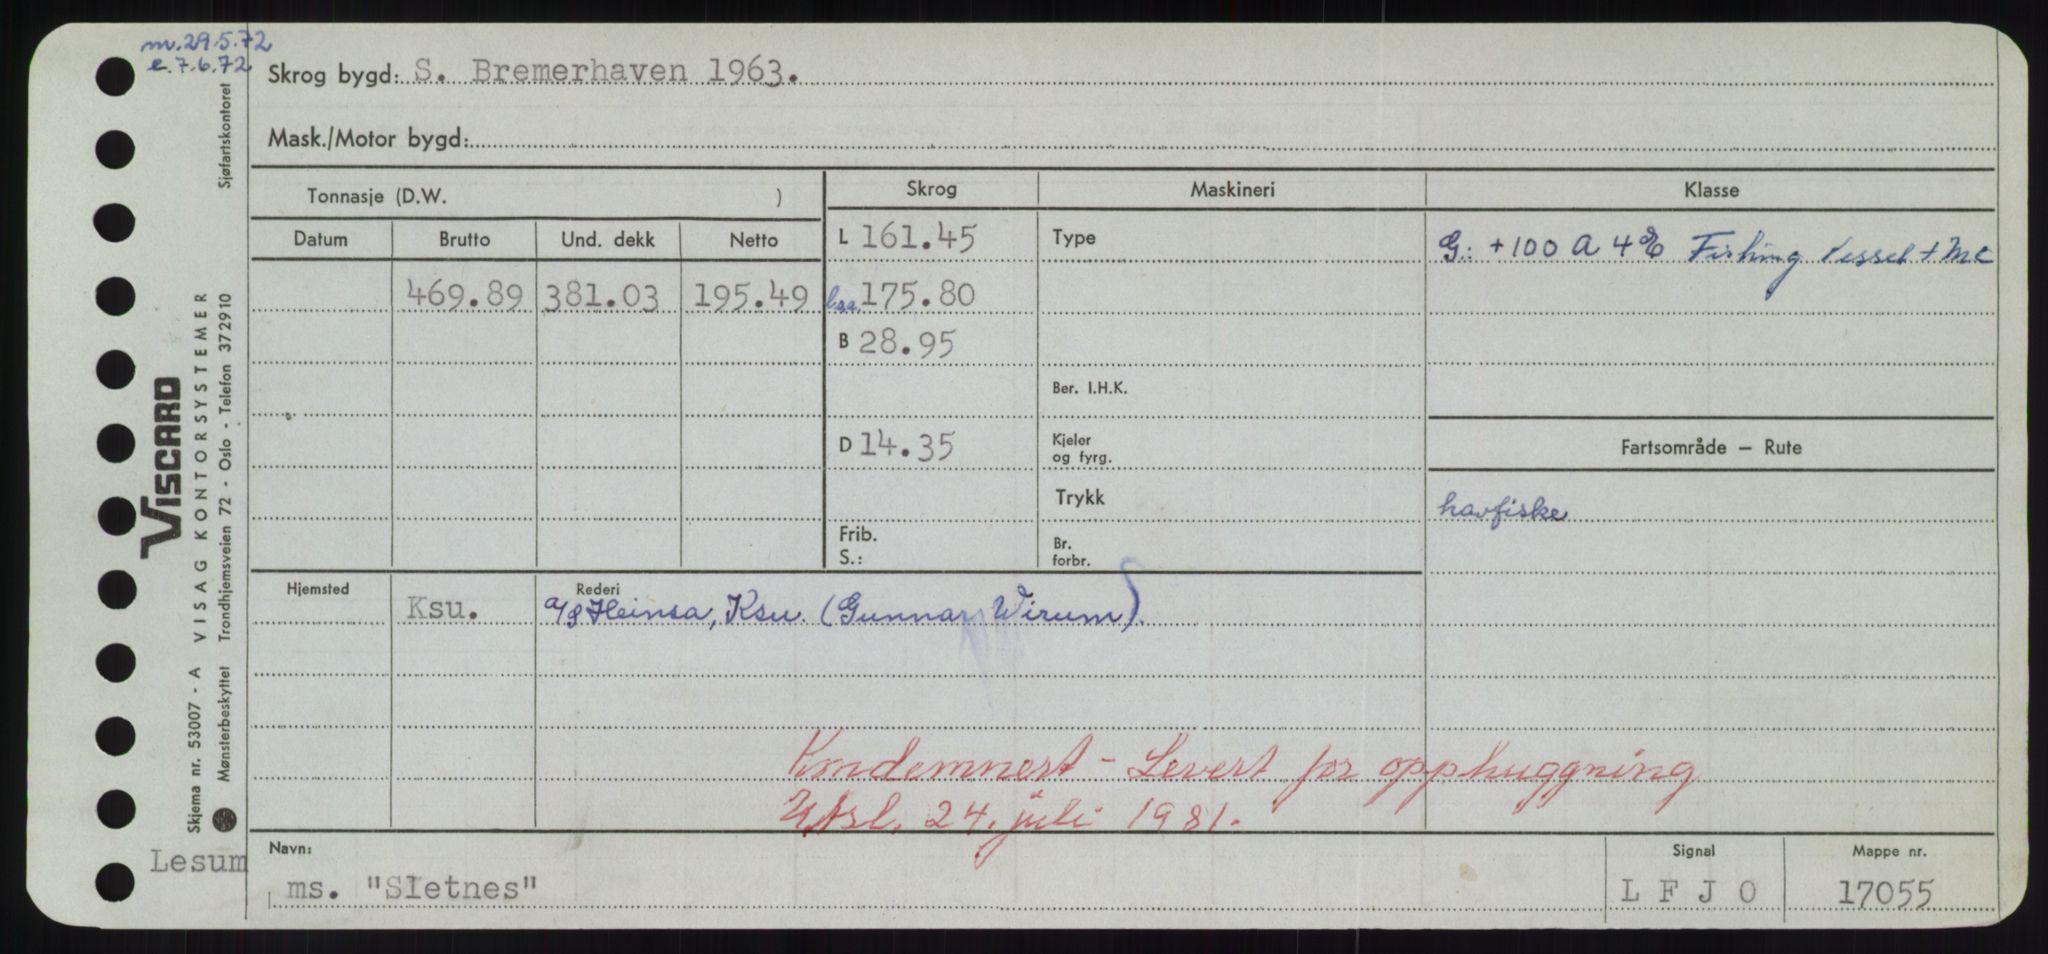 m. 29.5.72
e. 7.6.72
Skrog bygd: S. Bremerhaven 1963.
Mask./Motor bygd:
Tonnasje (D.W. )
Skrog
Maskineri
Klasse
Datum Brutto Und. dekk Netto
L 161.45
Type
G: +100 A 4 E Fishing Vessel + MC
469.89 381.03 195.49
l.o.a. 175.80
B 28.95
Ber. I.H.K.
D 14.35
Kjeler og fyrg.
Fartsområde — Rute
Trykk
havfiske
Frib. S.:
Br. forbr.
Hjemsted
Rederi
Ksu. A/S Heinsa, Ksu. (Gunnar Wirum).
Kondemnert - Levert for opphuggning
Utsl. 24. juli 1981.
Lesum
Navn:
ms. "Sletnes"
Signal
L F J O
Mappe nr.
17055
VISCARD
Skjema nr. 53007 - A VISAG KONTORSYSTEMER
Mønsterbeskyttet Trondhjemsveien 72 - Oslo - Telefon 372910 Sjøfartskontoret